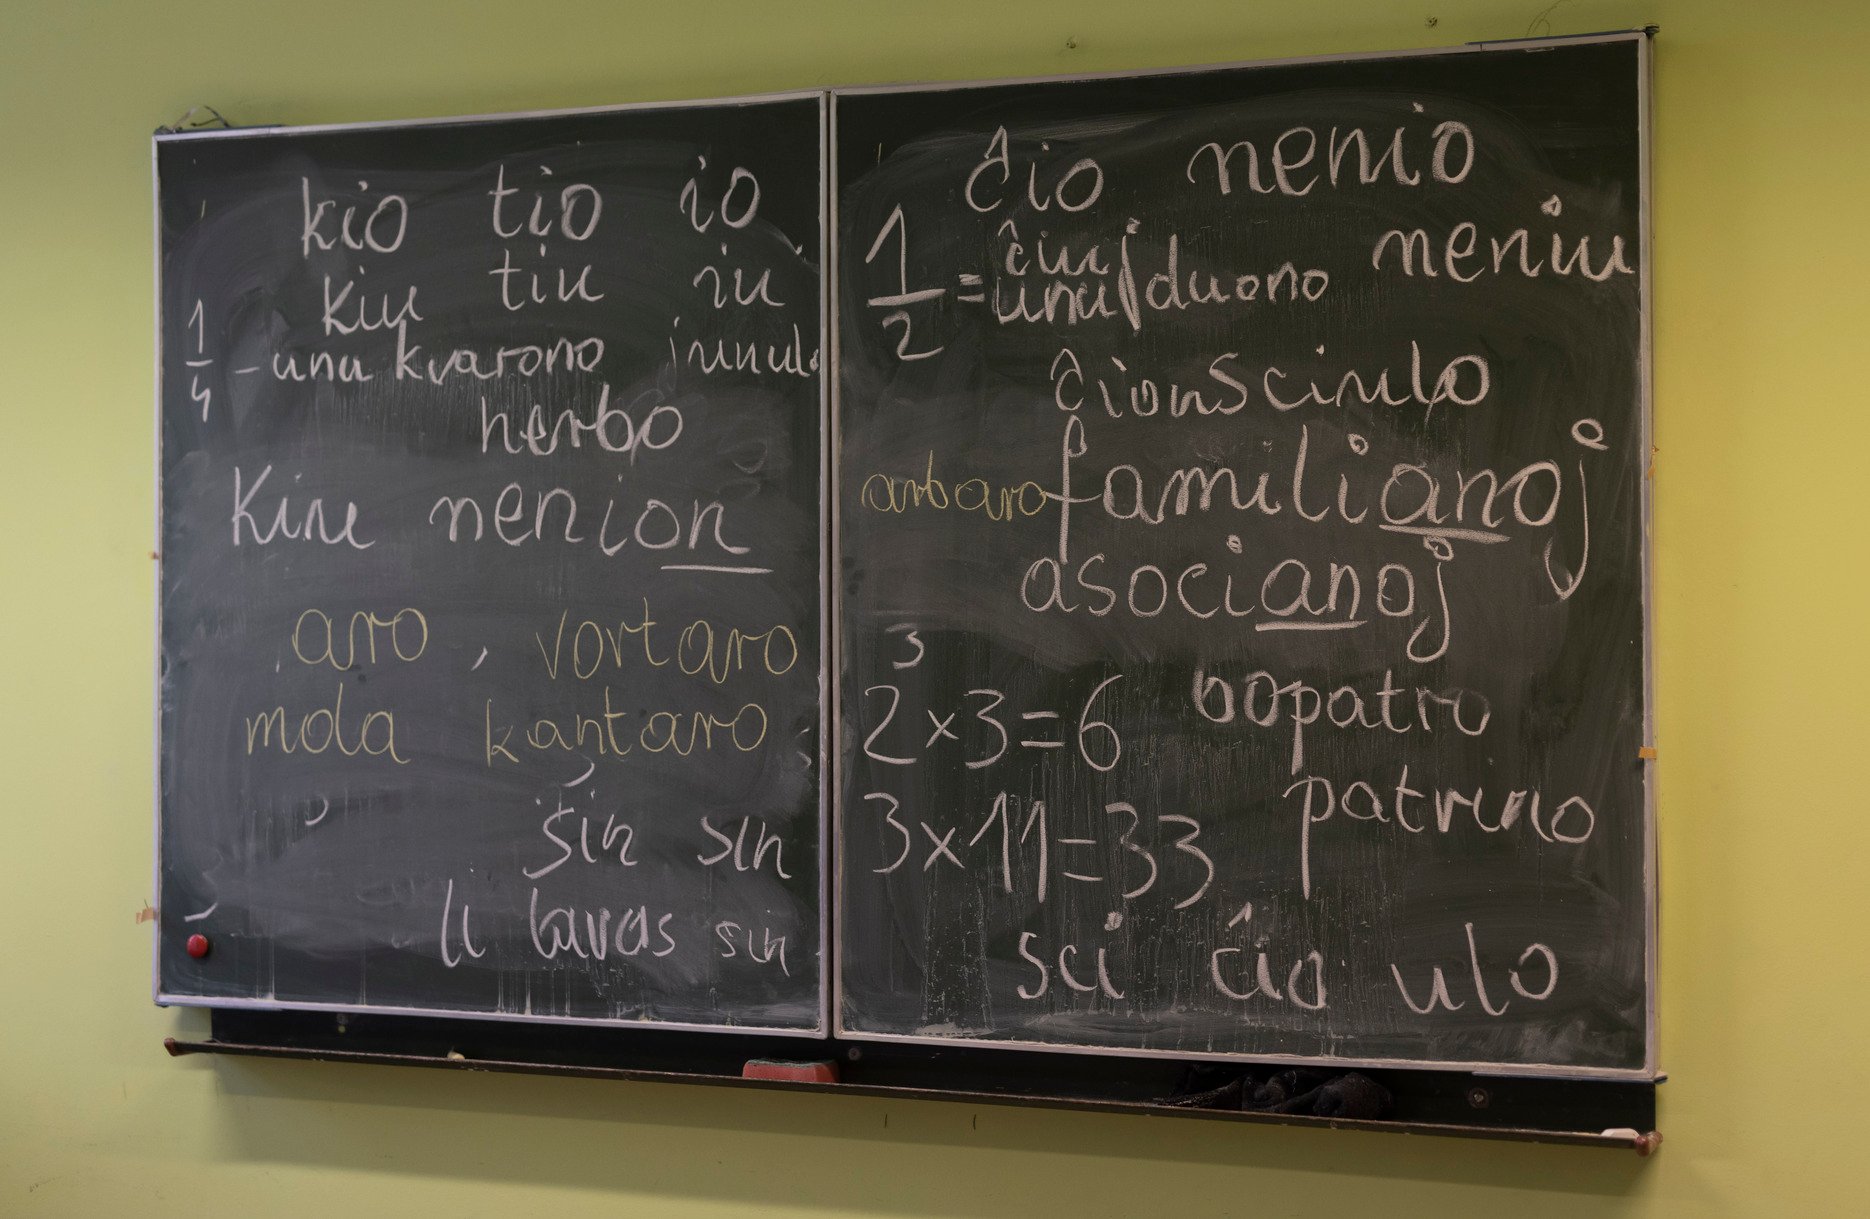 kio tio io
kiu tiu iu
1/4 - unu kvarono
herbo
Kiu nenion
aro, vortaro
mola kantaro
ŝin sin
li lavas sin
ĉio nenio
ĉiuj neniu
1/2 = unu duono
arbaro familianoj
asocianoj
3
2x3=6 bopatro
3x11=33 patrino
sci ĉio ulo